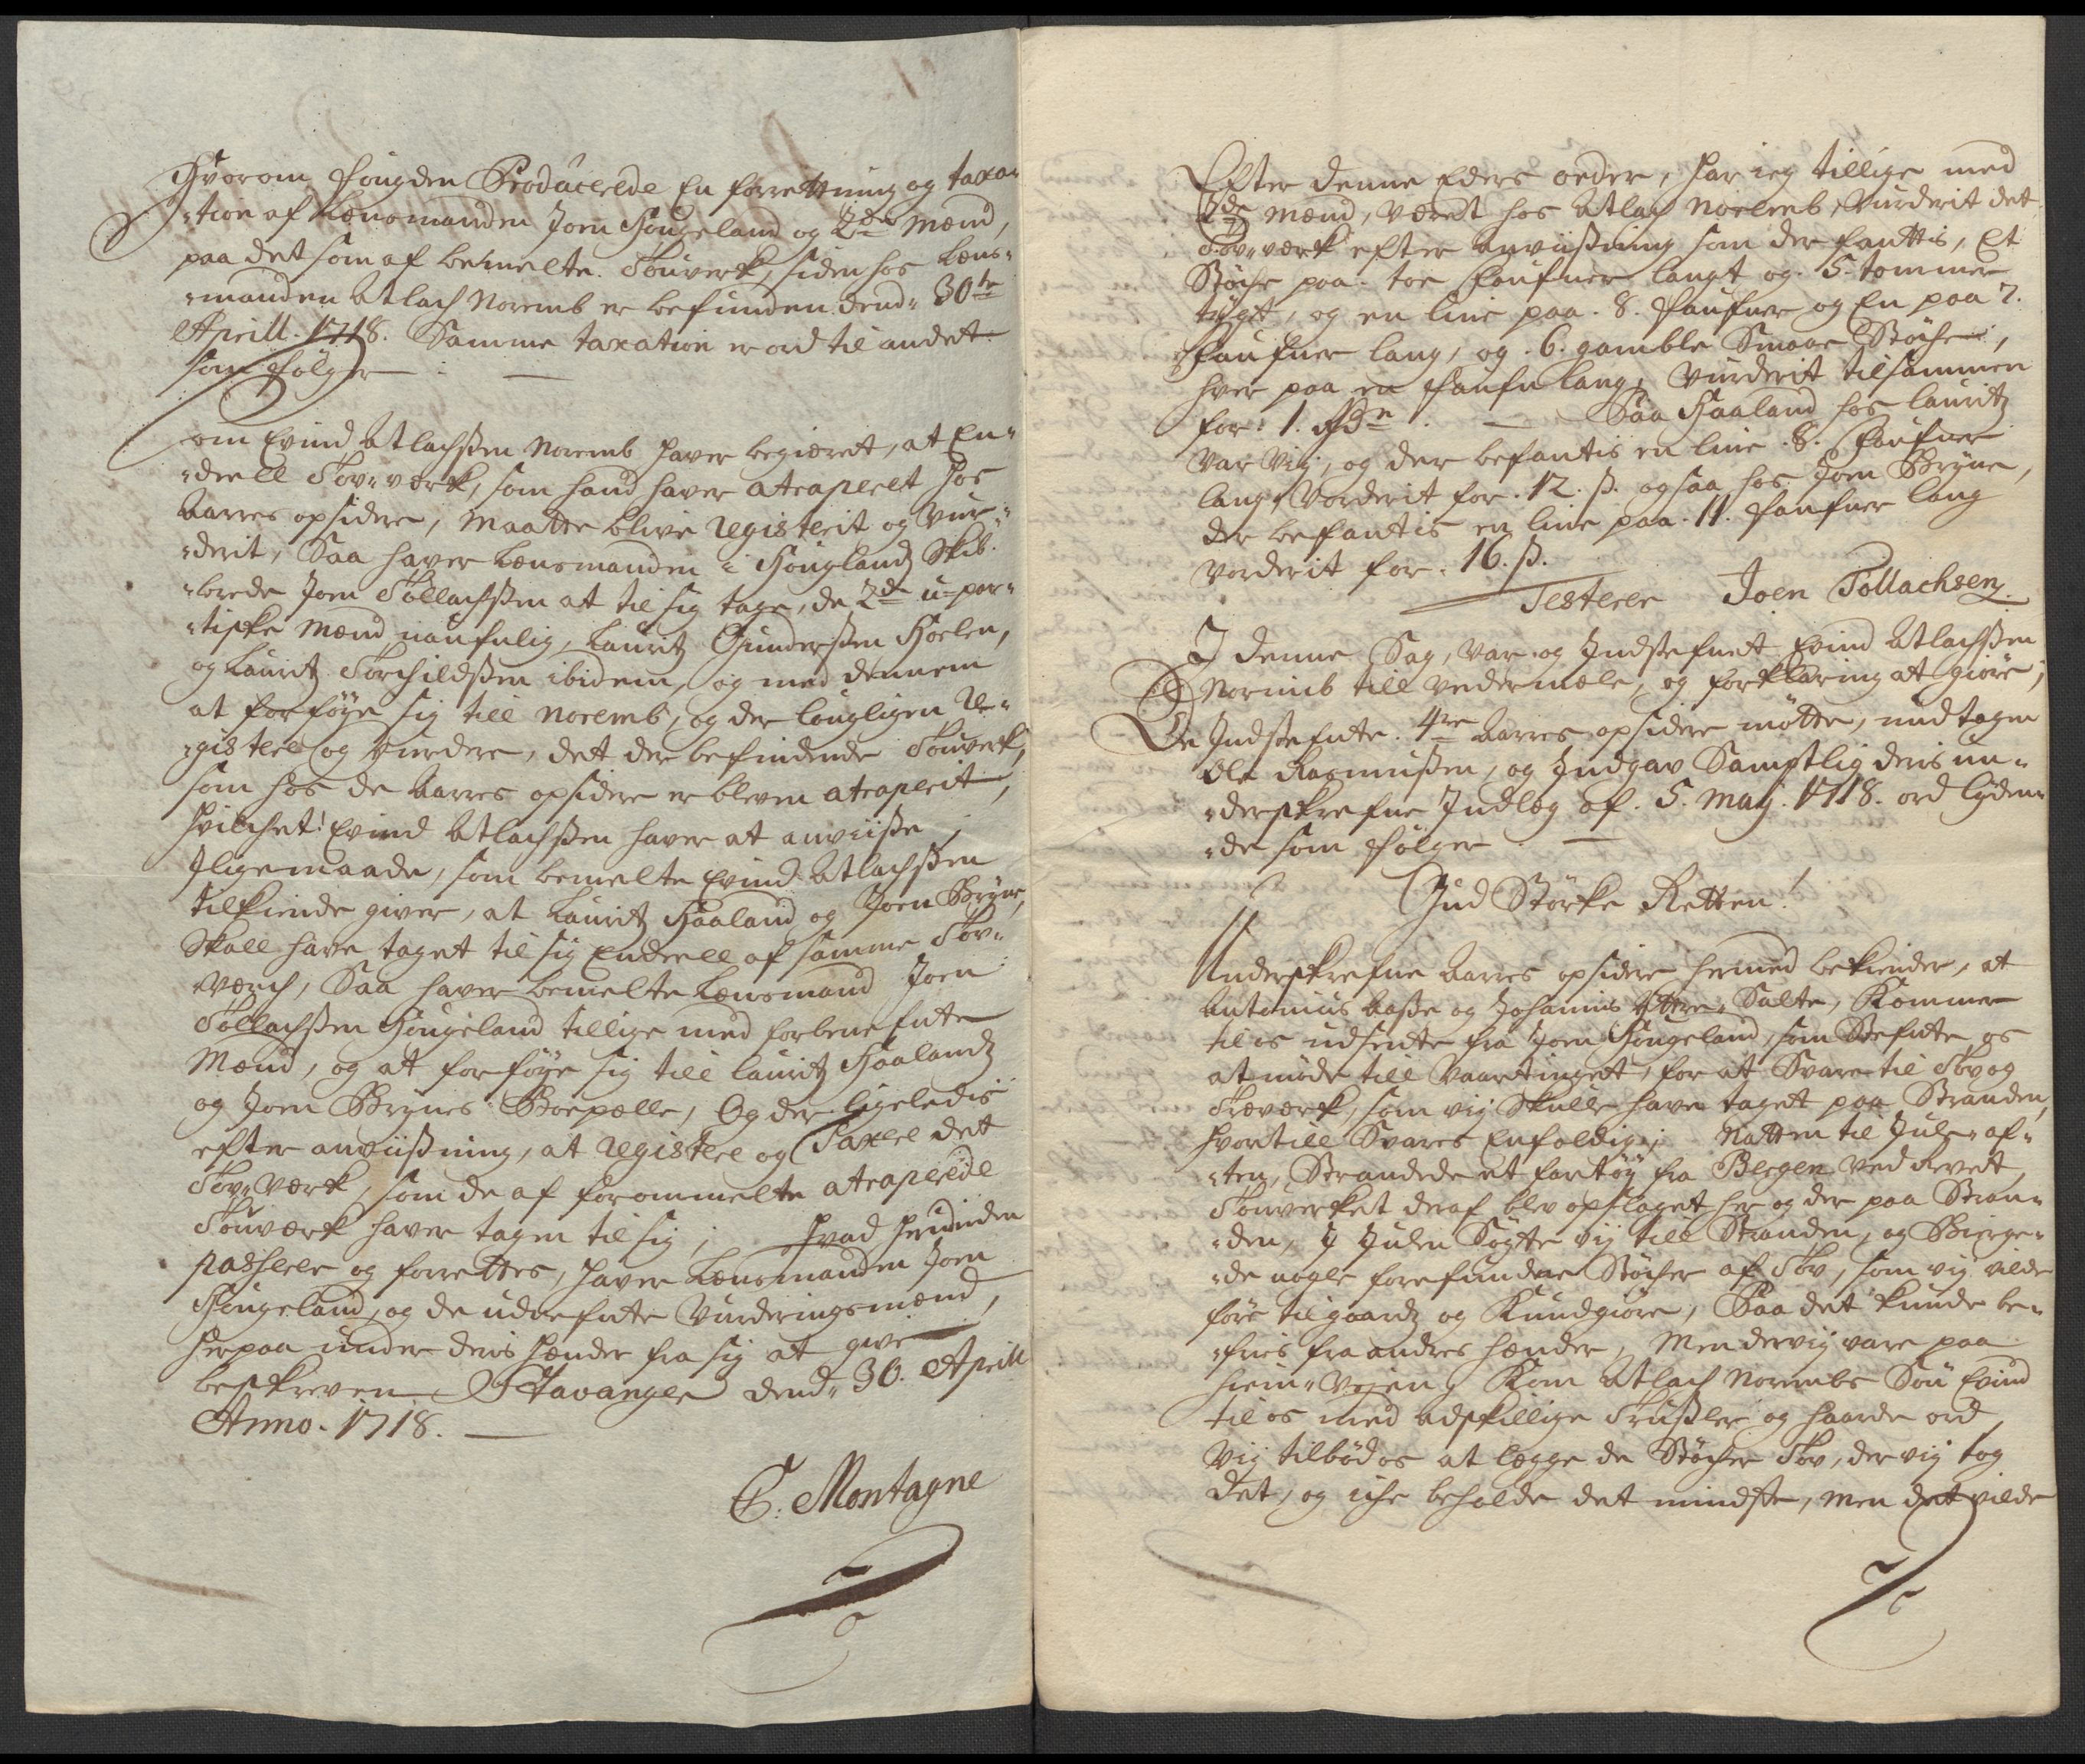 Hvorom Fougden Producerede En forrettning og taxa-
-tion af Lensmanden Joen Hougeland og 2de Mænd,
paa det som af bemelte Touverk, siden hos Lens-
-manden Atlach Noremb er befunden dend 30te
Aprill 1718. Samme taxation er ord til andet
som følger
Som Evind Atlachsen Noremb haver begieret, at En-
-deell Tov-værk, som hand haver atraperet hos
Aarres opsidere, maatte blive Registerit og Vur-
-derit, Saa haver Lensmanden i Houglandz Skib-
-brede Joen Tollachsen at til sig tage, de 2de u-par-
-tiske Mænd naufnlig, Lauritz Gundersen Hoelen,
og Lauritz Torchildsen ibidem, og med dennem
at forføye sig till Noremb, og der lougligen Re-
-gistere og Vurdere, det der befindende Touverk,
som hos de Aarres opsidere er bleven atraperit,
hvilchet Evind Atlachsen haver at anviise,
Jligemaade, som bemelte Evind Atlachsen
tilkiende giver, at Lauritz Haaland og Joen Bryne,
Skall have taget til sig Endeell af samme Tov-
-værch, Saa haver bemelte Lensmand Joen
Tollachsen Hougeland tillige med forbenefnte
Mænd, og at forføye sig till Lauritz Haalandz
og Joen Brynes Boepælle, Og der ligeledis
efter anviisning, at Registere og Taxere det
Tov-Værk, som de af forommelte atraperede
Touværk haver tagen til sig; Hvad herinden
passerer og forrettes, haver Lensmanden Joen
Hougeland, og de udnefnte Vurderingsmænd,
herpaa under deris hænder fra sig at give
beskreven Stavanger dend 30. Aprill
Anno. 1718.
C. Montagne
Efter denne Eders order, har ieg tillige med
2de Mænd, Væredt hos Atlach Noremb, Vurderit det
Tov-værk efter Anviisning som der fantis, Et
Støche paa toe Faufner langt og 5 tommer
tygt, og en line paa 8. Faufner og En paa 7.
Faufner lang, og 6. gamble Smaae Støcher,
hver paa en Faufn lang, Vurderit tilsammen
for 1. Rdr. Saa Haaland hos Lauritz
Var Vij, og der befantis en line 8. Faufner
lang, Vorderit for 12. s. ogsaa hos Joen Bryne,
der befantis en line paa 11. Faufner lang
Vorderit for 16. s.
Testerer Joen Tollachsen
J denne Sag, Var og Indstefnet Evind Atlachsen
Noremb till vedermæle, og forklaring at giøre;
De Indstefnte 4re Aarres opsidere møtte, undtagen
Ole Rasmusen, og Indgav Samptlig deris un-
-derskrefne Indlæg af 5. Maij 1718. ord lyden-
-de som følger
Gud Størke Retten!
Underskrefne Aarres opsidere hermed bekiender, at
Antonius Aase og Johannis Ytre-Salte, Kommer
til os udsendte fra Joen Hougeland, som Stefnte os
at møde till Vaartinget, for at Svare til Tov og
Træværk, som vij Skulle have taget paa Stranden,
hvortill Svares Enfoldig; Natten til Jule-af-
-ten, Strandede et fartøy fra Bergen ved Revet,
Touverket deraf blev opslaget her og der paa Stran-
-den, J Julen Søgte vij till Stranden, og Bierge-
-de nogle forefundene Støcher af Tov, som vij vilde
føre til gaardz og Kundgiøre, Saa det kunde be-
-fries fra andres hænder, Men der vij vare paa
hiem-Vejen, Kom Atlach Norembs Søn Evind
til os med adskillige Trusler og haarde ord,
Vij tilbød os at legge de Støcher Tov, der vij tog
det, og iche beholde det mindste, men det vilde